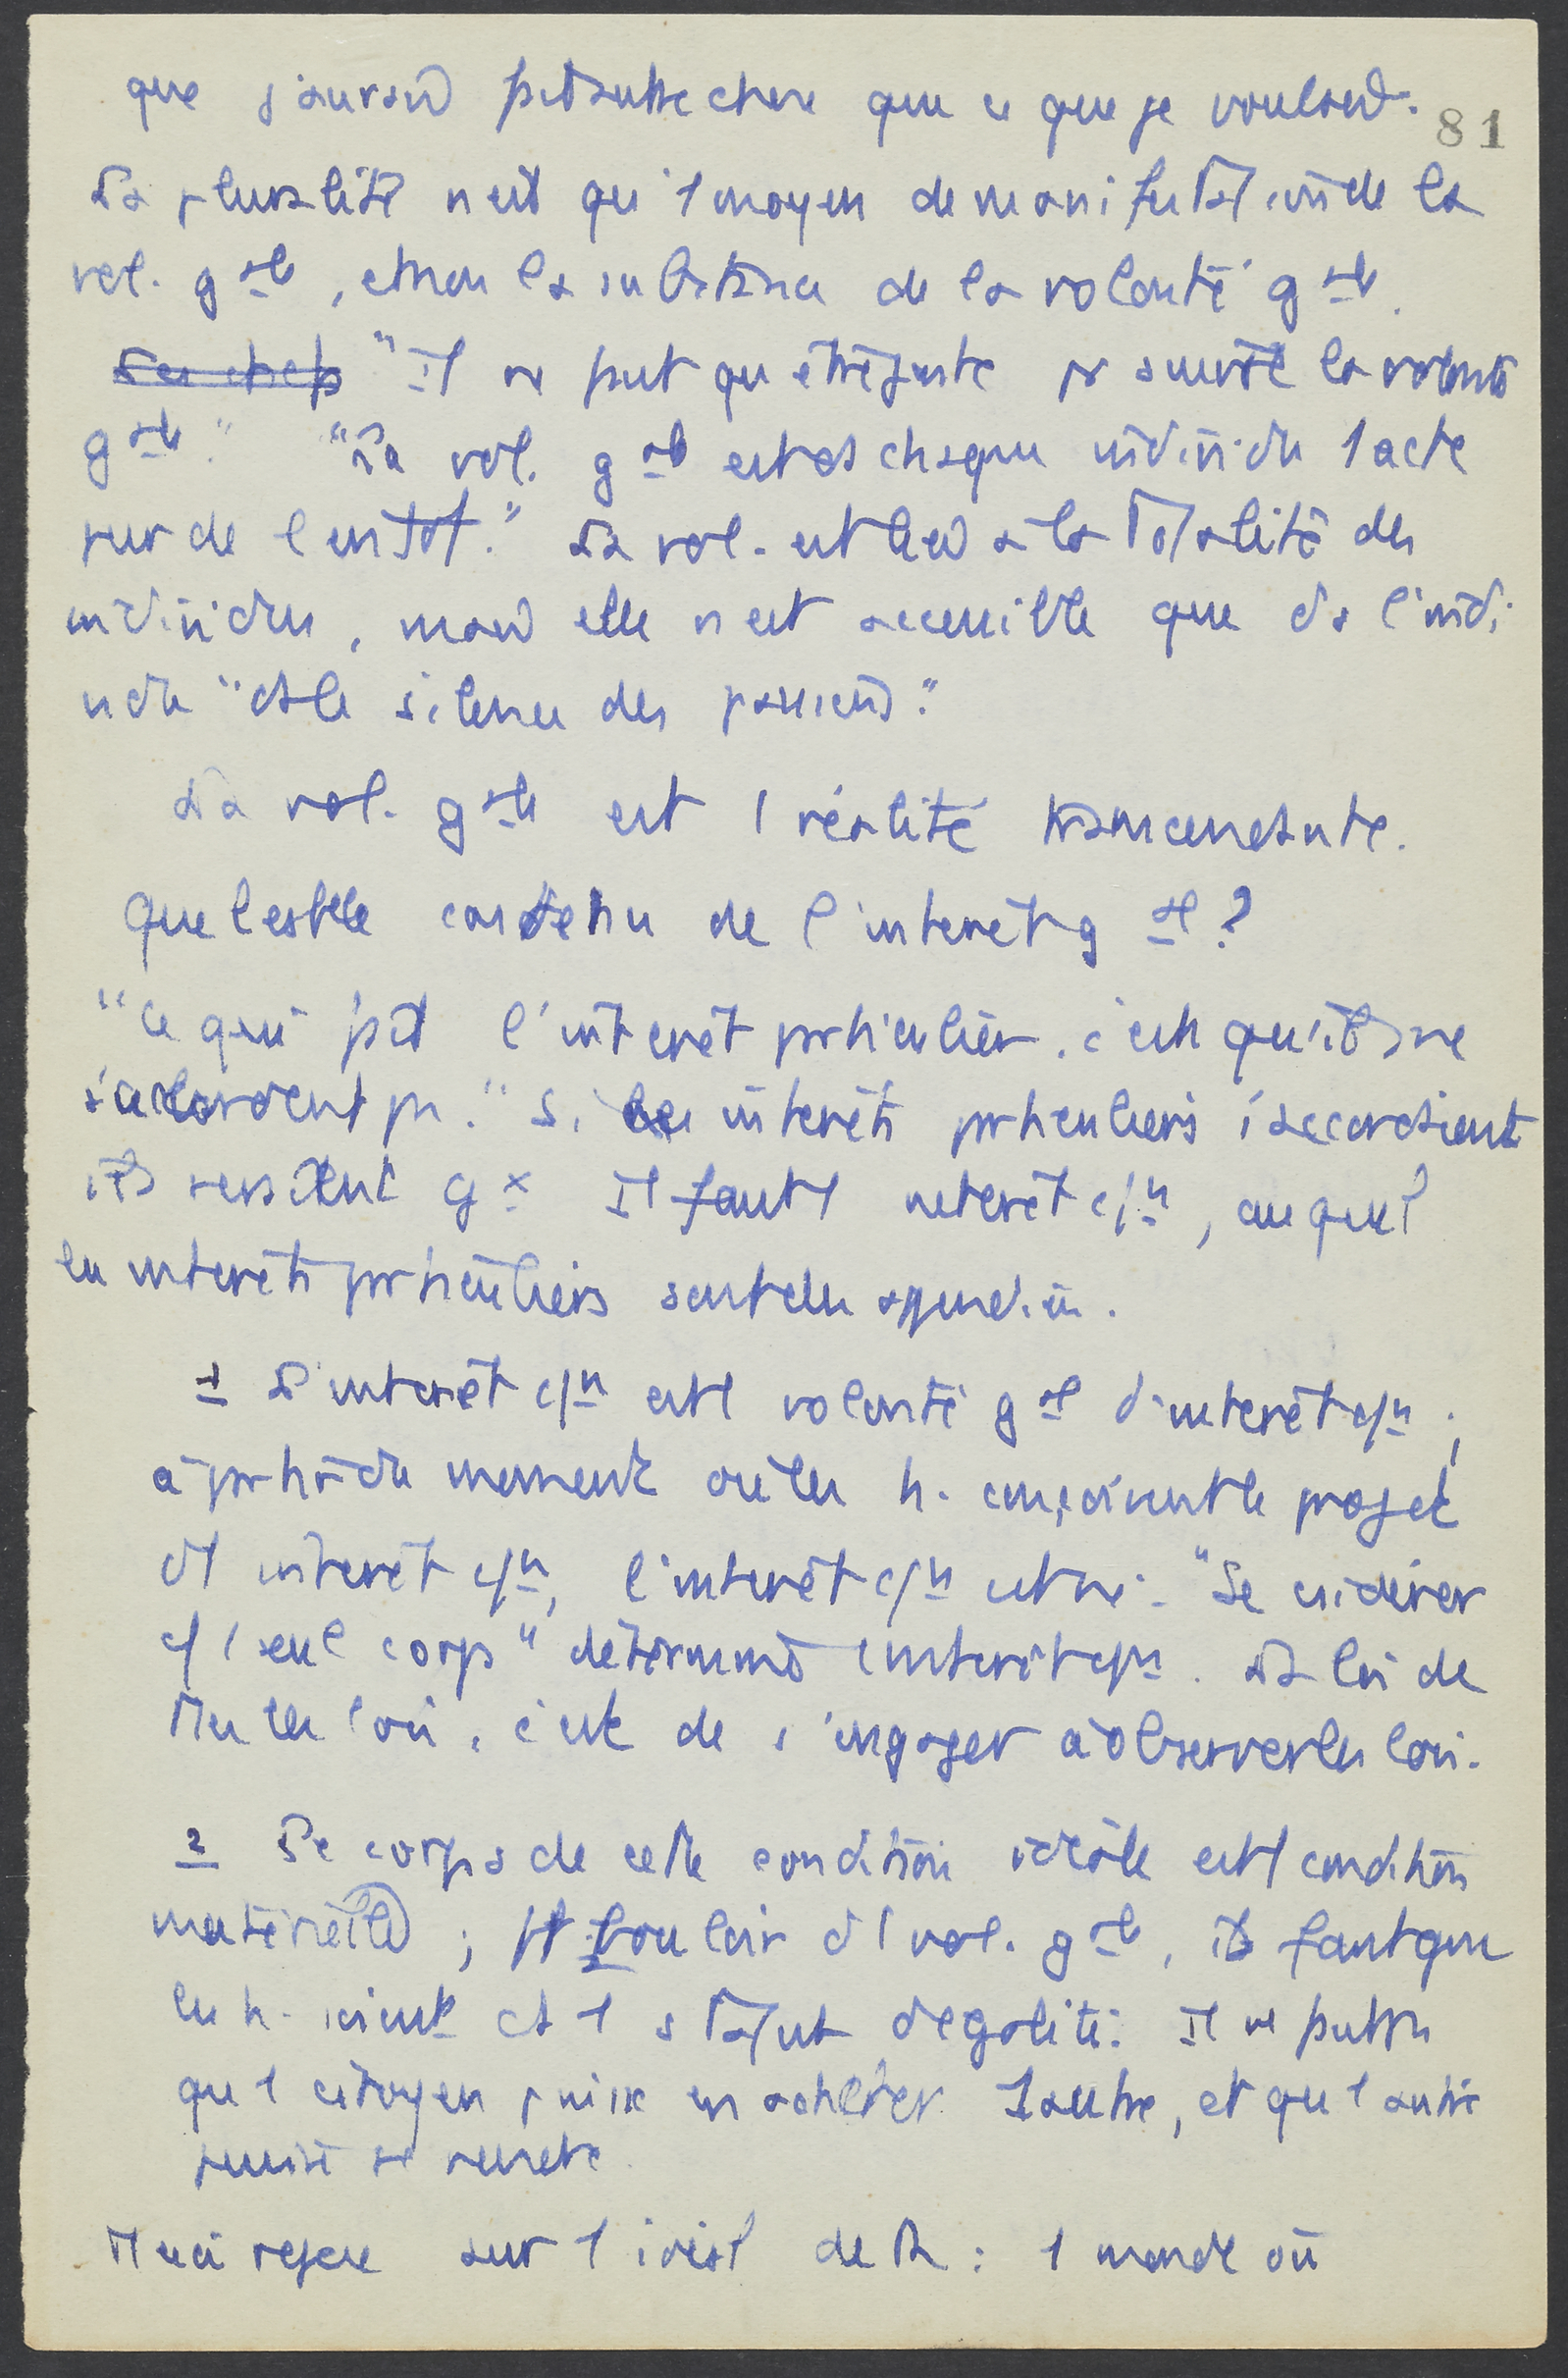 que j'aurais fait autre chose que ce que je voulais.
81
La pluralité n'est qu'1 moyen de manifestation de la
vol. gale, et non la substance de la volonté gale.
Les chefs "Il ne faut qu'être juste pr suivre la volonté
gale." "La vol. gale est ds chaque individu 1 acte
pur de l'ent̶d̶t̶." La vol. est liée à la totalité des
individus, mais elle n'est accessible que ds l'indi
vidu "ds le silence des passions."
La vol. gale est 1 réalité transcendante.
Quel est le contenu de l'interêt gal ?
"Ce qui fait l'intérêt particulier, c'est qu'ils ne
s'accordent pas." Si les intérêts particuliers s'accordaient
ils seraient gx. Il faut 1 intérêt c/n, auquel
les intérêts particuliers sont
1 L'intérêt c/n est 1 volonté gal d'intérêt c/n ;
à partir du moment où les h. conçoivent le projet
d'1 intérêt c/n, l'intérêt c/n est né. "Se considérer
c/ 1 seul corps" détermine l'intérêt c/n. La loi de
ttes les lois, c'est de s'engager à observer les lois.
2 Le corps de cette condition idéale est 1 condition
matérielle ; pr vouloir d'1 vol. gale, il faut que
les h. soient ds 1 statut d'égalité. Il ne faut pas
qu'1 citoyen puisse en acheter 1 autre, et qu'1 autre
puisse se vendre.
Tt ceci repose sur 1 idéal de R : 1 monde où